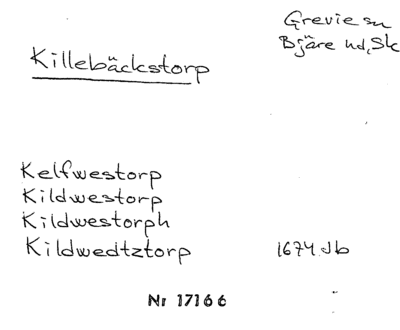 Grevie sn
Bjäre hd, Sk
Killebäckstorp
Kelfwestorp
Kildwestorp
Kildwestorph
Kildwedtztorp 1674 Jb
Nr 17166